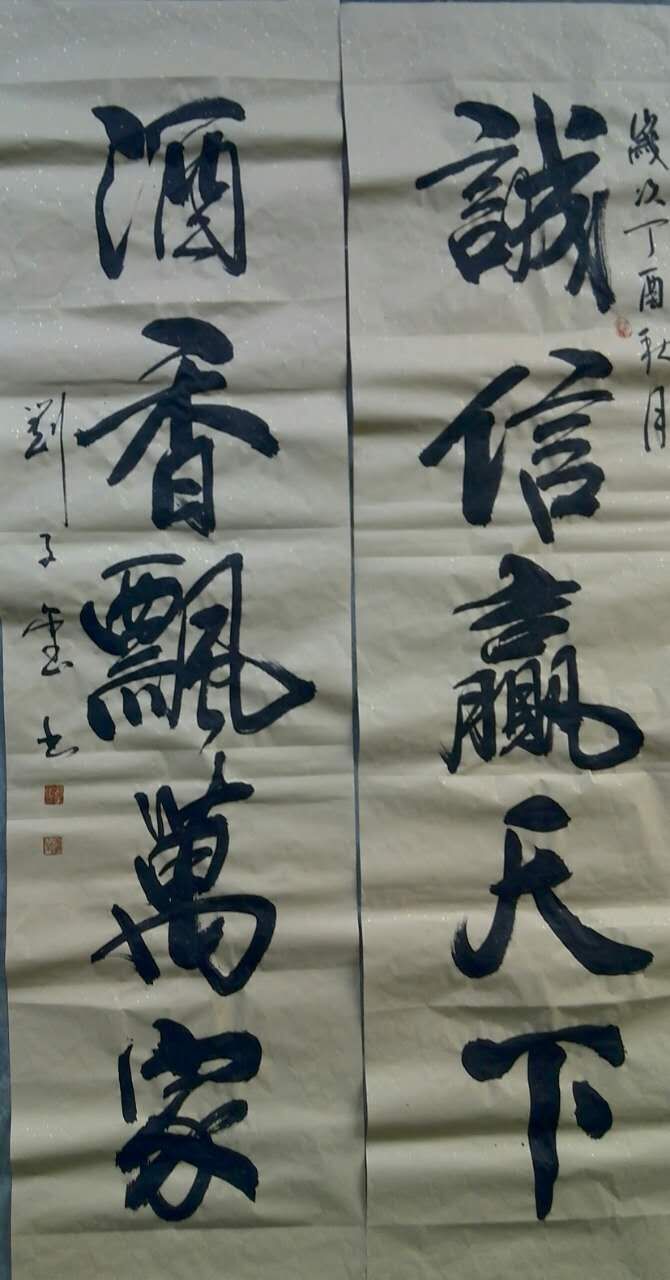 歲次丁酉秋月
誠信贏天下
酒香飄萬家
劉子墨书